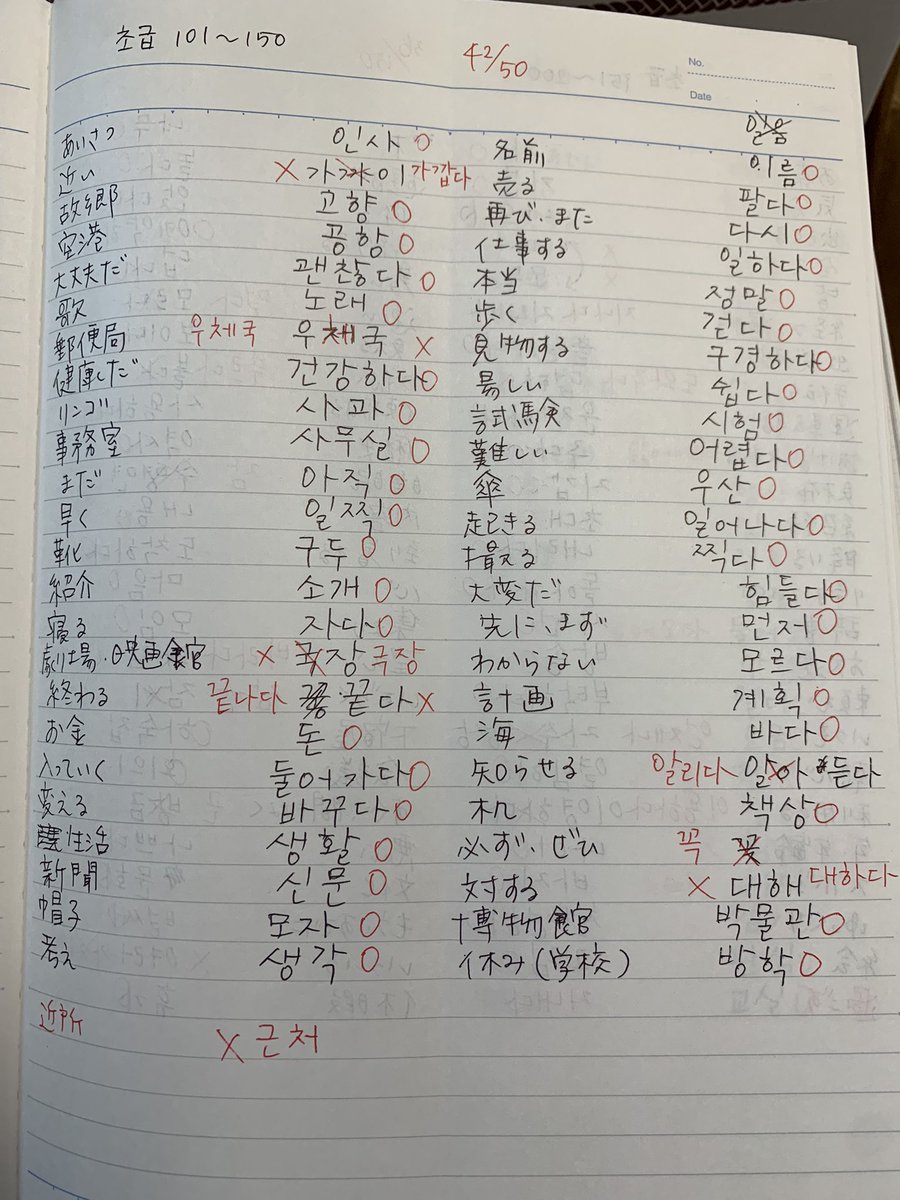 초급 101～150
42/50
No.
Date
あいさつ 인사 O
近い X 가까이 가깝다
故郷 고향 O
空港 공항 O
大丈夫だ 괜찮다 O
歌 노래 O
郵便局 우체국 우체국 X
健康だ 건강하다 O
リンゴ 사과 O
事務室 사무실 O
まだ 아직 O
早く 일찍 O
靴 구두 O
紹介 소개 O
寝る 자다 O
劇場・映画館 X 장 극장
終わる 끝나다 끝다 X
お金 돈 O
入っていく 둘어가다 O
変える 바꾸다 O
生活 생활 O
新聞 신문 O
帽子 모자 O
考え 생각 O
近所 X 근처
名前 이름 O
売る 팔다 O
再び、また 다시 O
仕事する 일하다 O
本当 정말 O
歩く 걷다 O
見物する 구경하다 O
易しい 쉽다 O
試験 시험 O
難しい 어렵다 O
傘 우산 O
起きる 일어나다 O
撮る 찍다 O
大変だ 힘들다 O
先に、まず 먼저 O
わからない 모르다 O
計画 계획 O
海 바다 O
知らせる 알리다 알아듣다
机 책상 O
必ず、ぜひ 꼭 꽃
対する X 대해 대하다
博物館 박물관 O
休み(学校) 방학 O